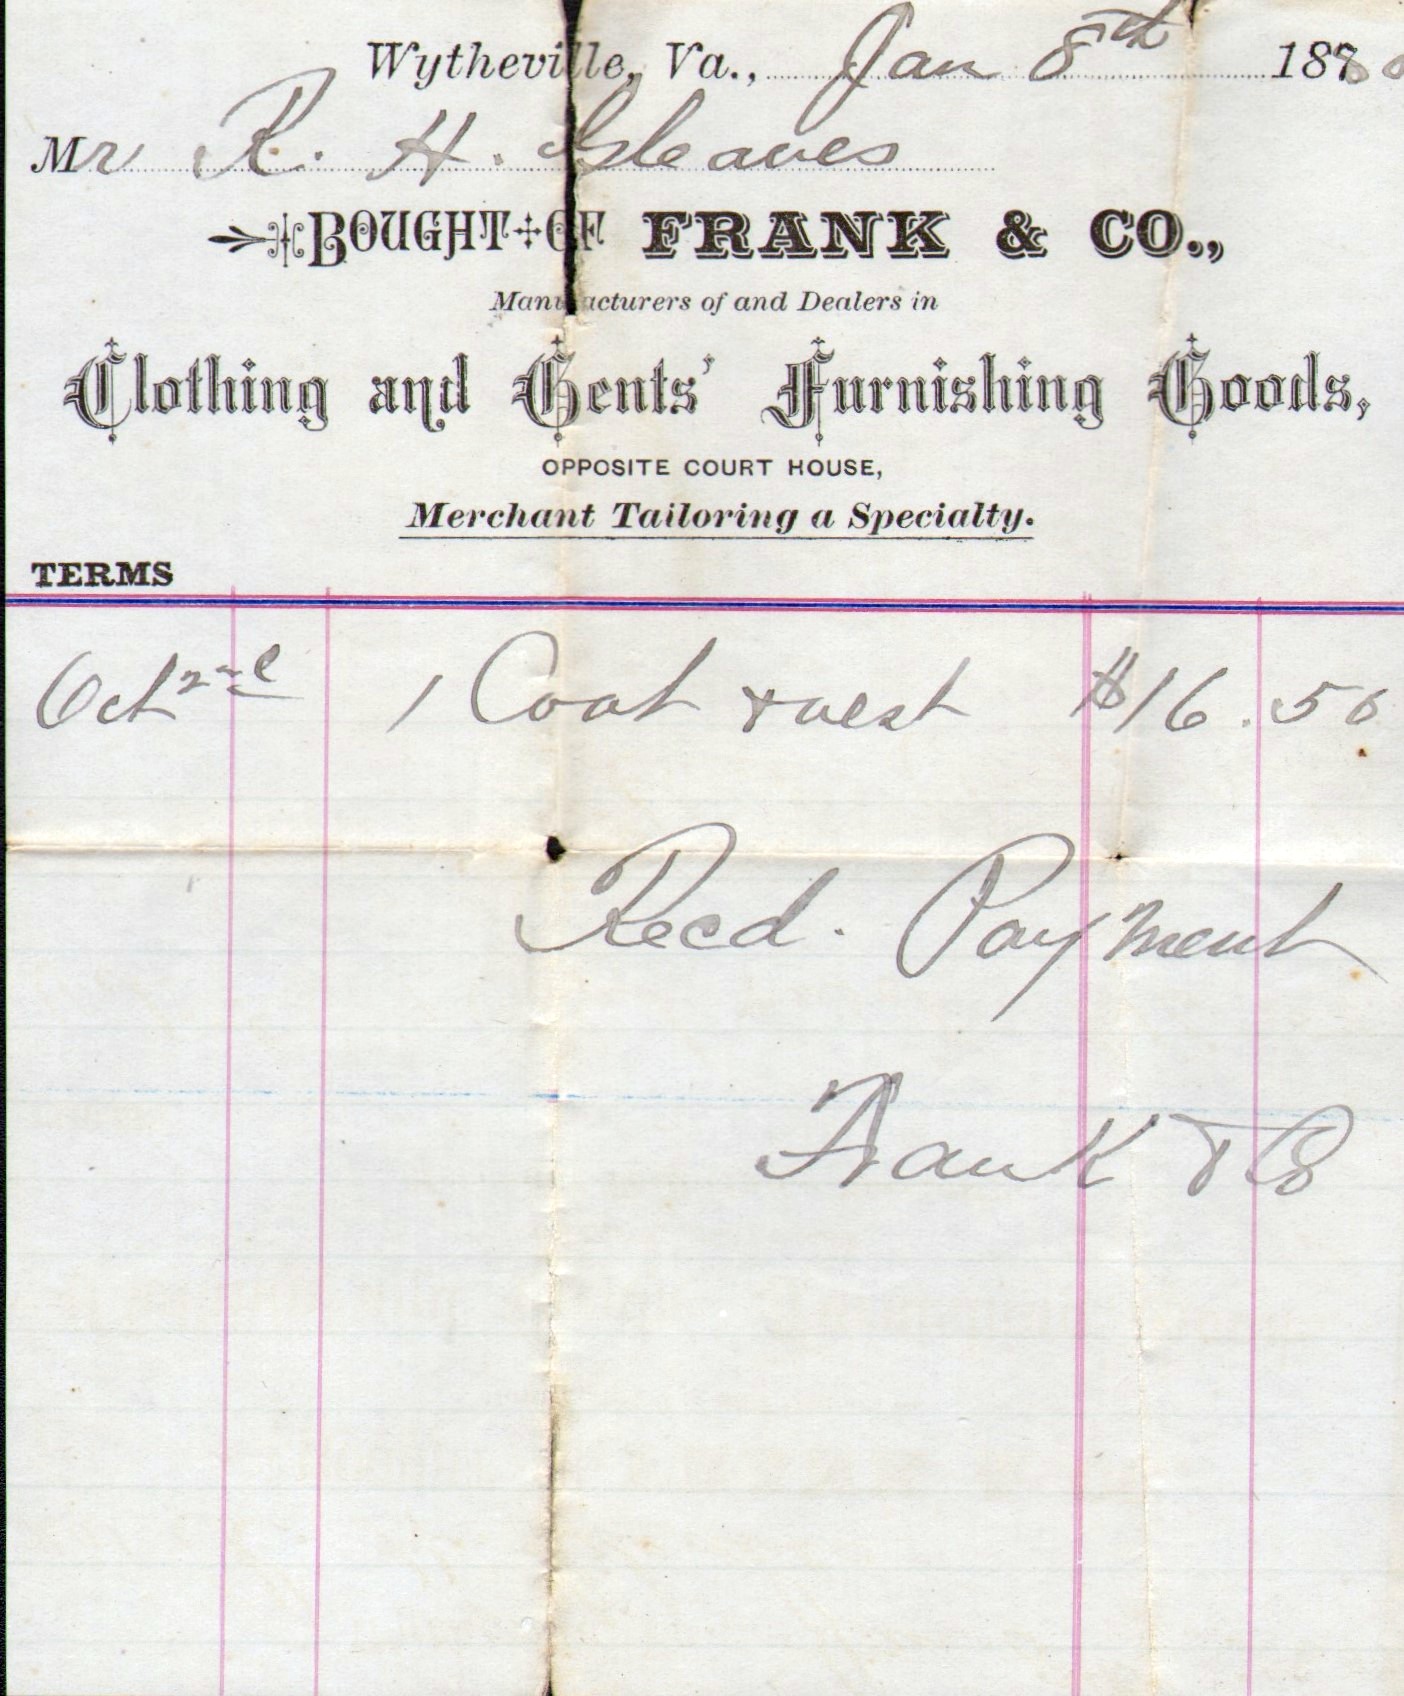 Wytheville, Va., Jan 8th 1880
Mr R. H. Gleaves
BOUGHT OF FRANK & CO.,
Manufacturers of and Dealers in
Clothing and Gents' Furnishing Goods,
OPPOSITE COURT HOUSE,
Merchant Tailoring a Specialty.
TERMS
Oct 2nd 1 Coat & vest $16.50
Recd. Payment
Frank & Co